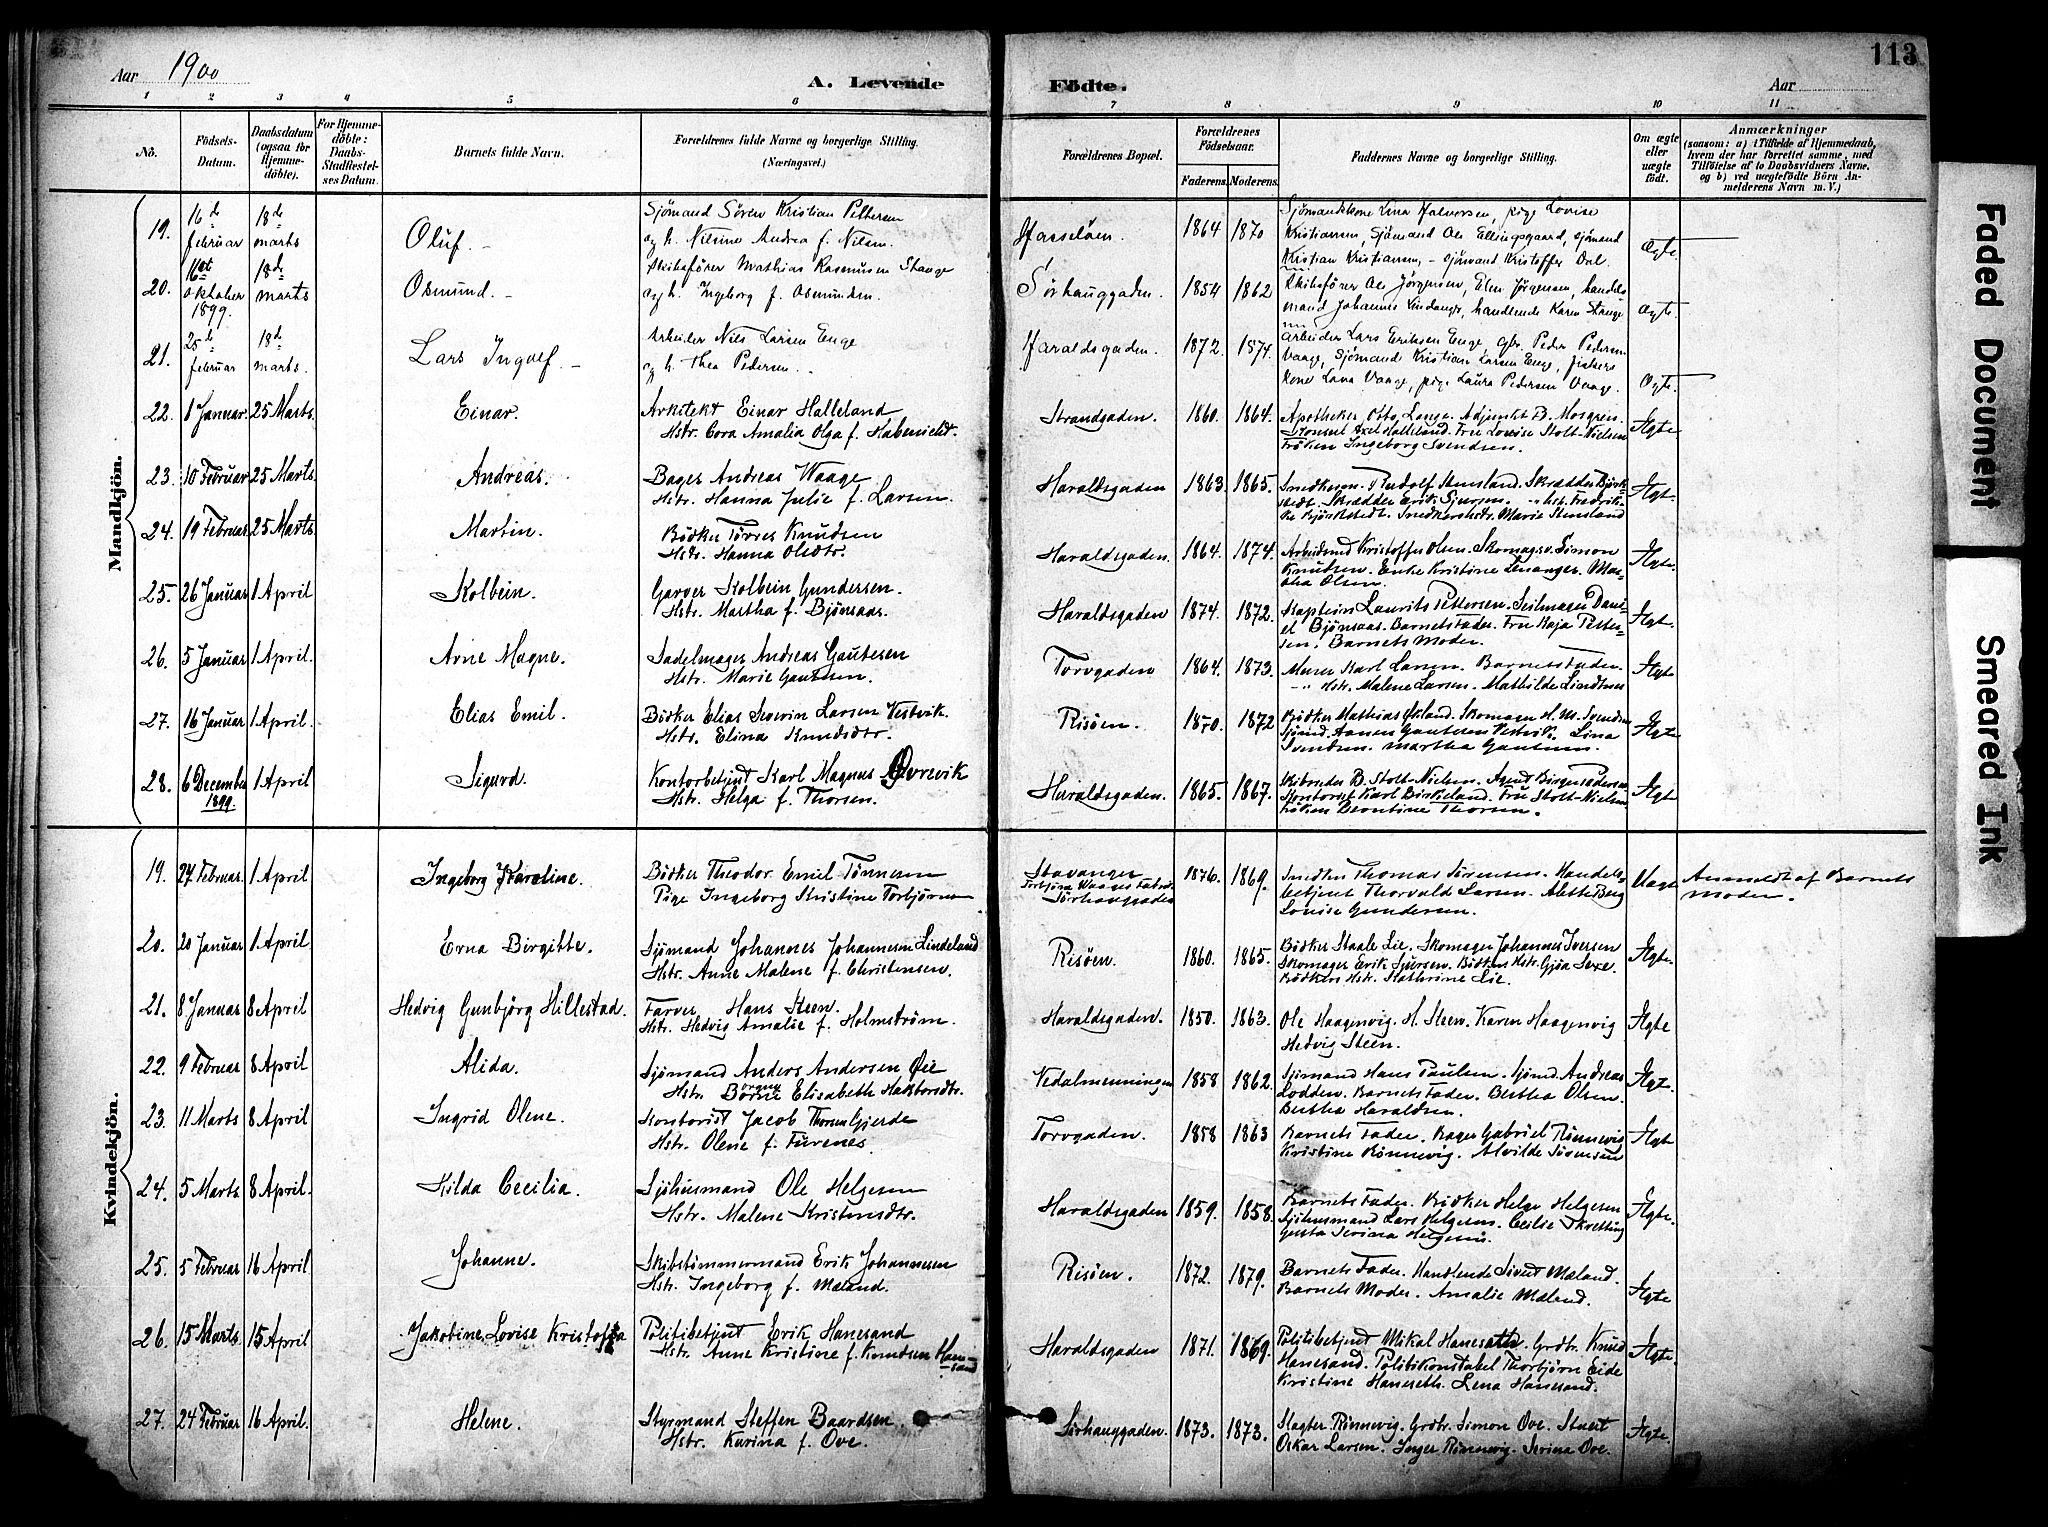 Aar 1900
A. Levende
Födte.
Aar
113
1 2 3 4 5 6 7 8 9 10 11
Nö.
Födsels-Datum.
Daabsdatum (ogsaa for Hjemme-döbte).
For Hjemme-döbte: Daabs-Stadfæstelses Datum.
Barnets fulde Navn.
Forældrenes fulde Navne og borgerlige Stilling. (Næringsvei.)
Forældrenes Bopæl.
Forældrenes Födselsaar.
Faderens. Moderens.
Faddernes Navne og borgerlige Stilling.
Om ægte eller uægte födt.
Anmærkninger
(saasom: a) i Tilfælde af Hjemmedaab, hvem der har forrettet samme, med Tilföielse af to Daabsvidners Navne, og b) ved uægtefödte Börn Anmelderens Navn m. V.)
Mandkjön.
19. 16de februar 18de marts Oluf. Sjömand Sören Kristian Pettersen og h. Nilsine Andrea f. Nilsen. Hasseløen. 1864 1870 Sjömandskone Lina Halvorsen, pige Lovise
Kristiansen, Sjömand Ole Ellingsgaard, sjömand
Kristian Kristiansen, - sjömand Kristoffer Ægte
20. oktober 1899. 18de marts Osmund. Skibsfører Mathias Rasmussen Stange og h. Ingeborg f. Osmundsen. Sörhauggaden. 1854 1862 Skibsfører Ole Jörgensen, Elen Jörgensen, handels
mand Johannes handlende Karen Stange Ægte.
21. 25de februar 18de marts. Lars Ingolf. Arbeider Nils Larsen Enge og h. Thea Pedersen. Haraldsgaden. 1872. 1874. Arbeider Lars Eriksen Enge, gbr. Peder Pedersen
Vaage, Sjömand Kristian Larsen Enge, fiskers
kone Lava Vaage, pige Laura Pedersen Vaage. Ægte.
22. 1 Januar. 25 Marts. Einar. Arkitekt Einar Halleland
Hstr. Cora Amalia Olga f. Habenicht. Strandgaden. 1860. 1864. Apotheker Otto Lange. Adjunkt B. Mosgren.
Konsul Axel Halleland. Fru Lovise Stolt-Nielsen
Fröken Ingeborg Svendsen. Ægte
23. 10 Februar 25 Marts. Andreas. Bager Andreas Waage
Hstr. Hanna Julie f. Larsen. Haraldsgaden 1863. 1865. Snedkersv. Rudolf Stensland. Skrædder Björk-
stedt. Skrædder Erik Sjursen. " hstr. Fredrik-
ke Björkstedt. Snedkershstr. Marie Stensland Ægt.
24. 19 Februar 25 Marts. Martin. Bödker Törres Knudsen
Hstr. Hanna Olsdtr. Haraldsgaden. 1864. 1874. Arbeidsmd Kristoffer Olsen. Skomagersv. Simon
Knudsen. Enke Kristine Lenanger. Mar-
tha Olsen. Ægte.
25. 26 Januar 1 April Kolbein. Garver Kolbein Gundersen.
Hstr. Martha f. Bjönsaas. Haraldsgaden 1874. 1872. Kaptein Laurits Pettersen. Seilmager Dani-
el Bjönsaas. Barnets Fader. Fru Kaja Petter-
sen. Barnets Moder. Ægt.
26. 5 Januar 1 April. Arne Magne. Sadelmager Andreas Gautesen
Hstr. Marie Gautesen. Torvgaden 1864. 1873. Murer Karl Larsen. Barnets Fader.
" Hstr. Malene Larsen. Mathilde Lindtner Ægte
27. 16 Januar 1 April. Elias Emil. Bödker Elias Severin Larsen Vestvik.
Hstr. Elina Knudsdtr. Risöen. 1870. 1872 Bödker Mathias Økland. Skomager H. M. Svendsen
Sjömd. Aanen Gautesen Vestvik. Lina
Svendsen. Martha Gautesen. Ægte
28. 6 December 1899. 1 April Sigurd. Kontorbetjent Karl Magnus Øvrevik
Hstr. Helga f. Thorsen. Haraldsgaden. 1865. 1867. Skibsreder B. Stolt-Nielsen. Agent Börge Pedersen
Kontorist Karl Birkeland. Fru Stolt-Nielsen
Fröken Berntine Thorsen. Ægte
Kvindekjön.
19. 27 Februar. 1 April Ingeborg Karoline. Bödker Theodor Emil Tönnesen
Pige Ingeborg Kristine Torbjörnsen Stavanger
Sörhauggaden 1876. 1869. Smeden Thomas Sörensen. Handels-
betjent Thorvald Larsen. Alette Berg
Lovise Gundersen. Uægt Anmeldt af Barnets Moder.
20. 20 Januar 1 April Erna Birgitte. Sjömand Johannes Johannesen Lindeland
Hstr. Anne Malene f. Christensen. Risöen. 1860. 1865. Bödker Staale Lie. Skomager Johannes Iversen
Skomager Erik Sjursen. Bödkers Hstr. Gjöa Sexe.
Bödkers Hstr. Kathrine Lie. Ægte.
21. 8 Januar 8 April Hedvig Gunbjörg Hillestad. Farver Hans Steen.
Hstr. Hedvig Amalie f. Holmström. Haraldsgaden. 1850. 1863. Ole Haagenvig. H. Steen. Karen Haagenvig
Hedvig Steen. Ægte
22. 9 Februar 8 April Alida. Sjömand Anders Andersen Øie
Hstr. Borgny Elisabeth Haktorsdtr. Vedalmenningen 1858 1862. Sjömand Hans Paulsen. Sjömd. Andreas
Lodden. Barnets Fader. Bertha Olsen.
Bertha Haraldsen. Ægt.
23. 11 Marts 8 April Ingrid Olene. Kontorist Jacob Thorsen Gjerde
Hstr. Olene f. Furenes. Torvgaden. 1858 1863 Barnets Fader. Bager Gabriel Rönnevig
Kristine Rönnevig. Alvilde Sörensen Ægt
24. 5 Marts 8 April. Hilda Cecilia. Sjöhusmand Ole Helgesen
Hstr. Malene Kristensdtr. Haraldsgaden 1859. 1858. Barnets Fader. Bödker Helge Helgesen
Sjöhusmand Lars Helgesen. Ceilse Skretting
Gusta Serina Helgesen. Ægte.
25. 5 Februar 16 April Johanne. Skibstömmermand Erik Johannesen
Hstr. Ingeborg f. Mæland. Risöen. 1872. 1879. Barnets Fader. Handlende Sivert Mæland.
Barnets Moder. Amalie Mæland. Ægte
26. 15 Marts. 15 April Jakobine Lovise Kristoffa Politibetjent Erik Hanesand
Hstr. Anne Kristine f. Knudsen Hanesand Haraldsgaden 1871. 1869. Politibetjent Mikal Hanesath. Grdbr. Knud
Hanesand. Politikonstabel Thorbjörn Eide
Kristine Haneseth. Lena Hanesand. Ægte.
27. 24 Februar 16 April. Helene. Styrmand Steffen Baardsen.
Hstr. Karina f. Ove. Sörhauggaden. 1873. 1873. Slagter Rönnevig. Grdbr. Simon Ove. Stuert
Oskar Larsen. Inger Rönnevig. Serina Ove. Ægte.
Faded Document
Smeared Ink